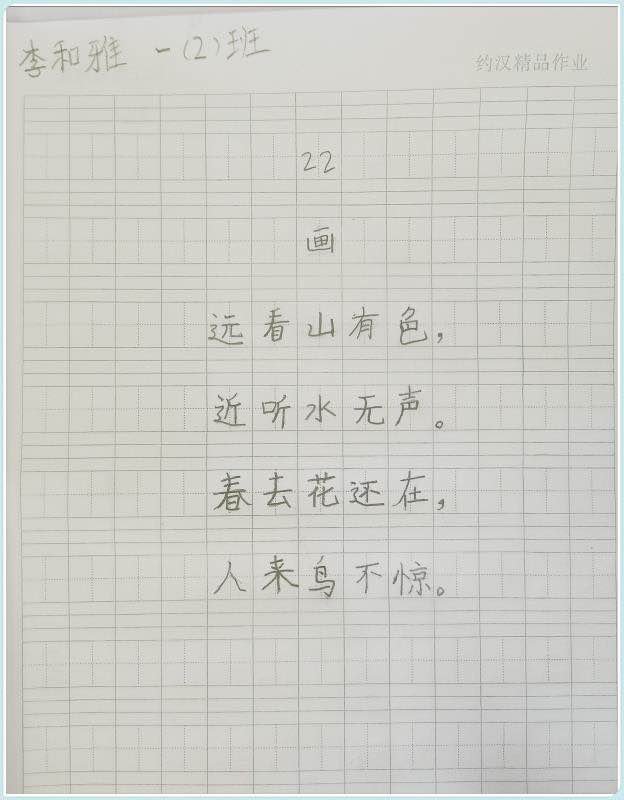 李和雅 一(2)班
约汉精品作业
22
画
远看山有色，
近听水无声。
春去花还在，
人来鸟不惊。